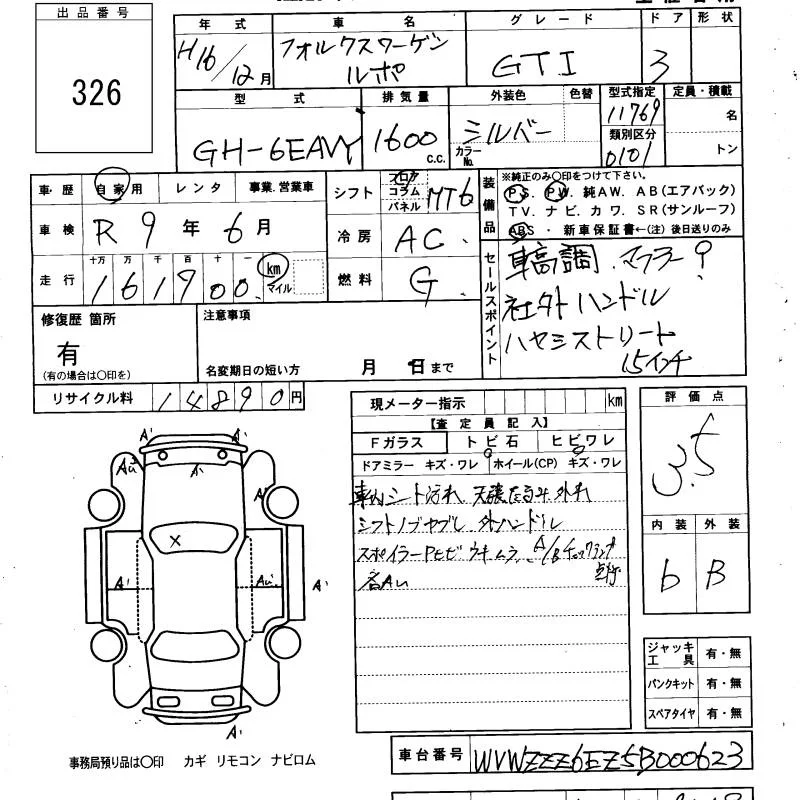 出品番号
326
年式 車名 グレード ドア 形状
H16/12月 フォルクスワーゲン ルポ GTI 3
型式 排気量 外装色 色替 型式指定 定員・積載
GH-6EAVY 1600 C.C. シルバー カラーNo. 11769 名
類別区分
0101 トン
車・歴 自家用 レンタ 事業.営業車
シフト フロア コラム パネル MT6
装備品 ※純正のみ〇印をつけて下さい。
PS. PW. 純AW. AB(エアバック)
TV. ナビ. カワ. SR(サンルーフ)
ABS・ 新車保証書←(注) 後日送りのみ
車検 R 9年 6月
冷房 AC.
走行 十万 万 千 百 十 一 km マイル
161900.
燃料 G.
セールスポイント
車高調. マフラー
社外ハンドル
ハヤミストリート
15インチ
修復歴 箇所
有
(有の場合は〇印を)
注意事項
名変期日の短い方 月 日まで
リサイクル料 14890円
現メーター指示 km
【査定員記入】
Fガラス トビ石 ヒビワレ
ドアミラー キズ・ワレ ホイール(CP) キズ・ワレ
車内シート汚れ 天張たるみ 外れ
シフトノブヤブレ 外ハンドル
スポイラーPヒビ ウキムラ A/Bチェックランプ
点灯
各Au
評価点
3.5
内装 外装
b B
A' A' A' Au A' A' Au A' A' A'
X
ジャッキ 工具 有・無
パンクキット 有・無
スペアタイヤ 有・無
事務局預り品は〇印 カギ リモコン ナビロム
車台番号 WVWZZZ6EZ5B000623